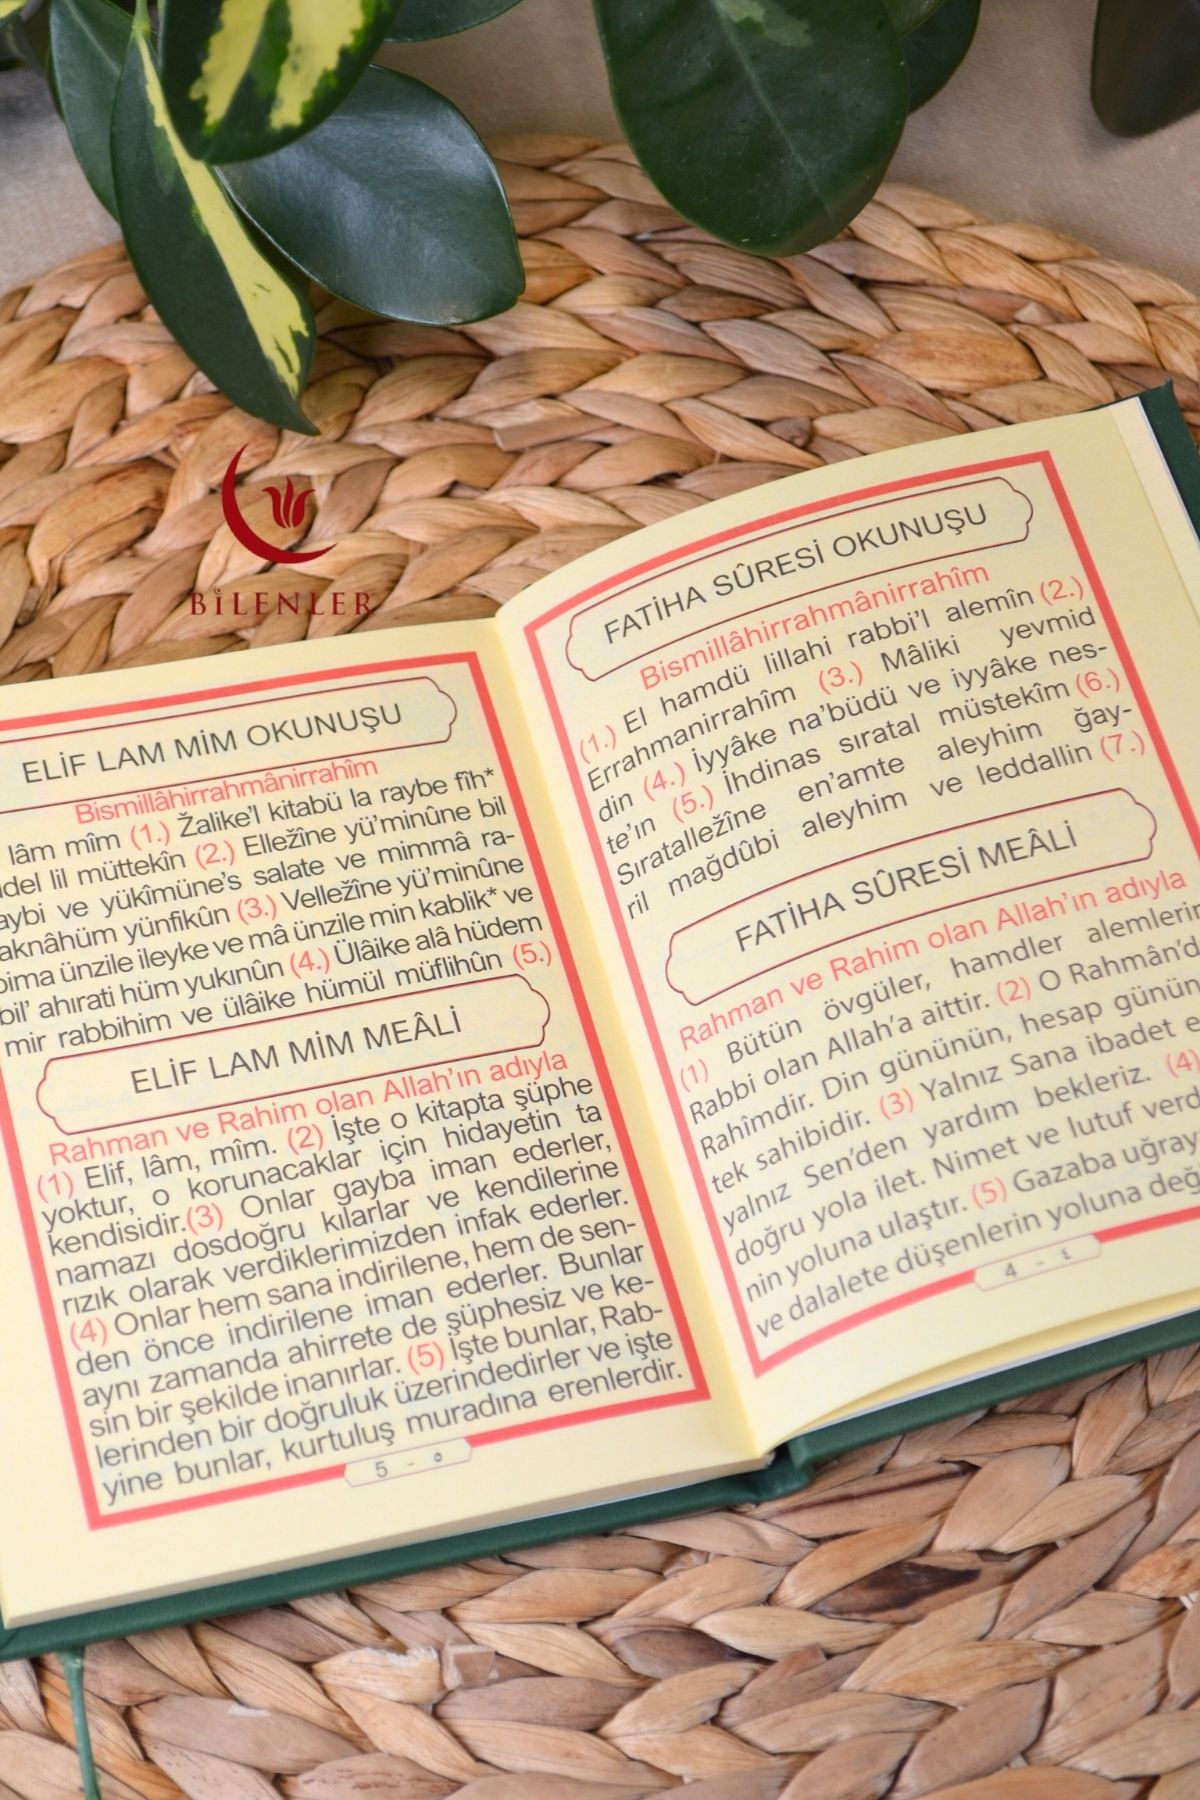 BİLENLER
FATİHA SÛRESİ OKUNUŞU
Bismillâhirrahmânirrahîm
(1.) El hamdü lillahi rabbi'l alemîn (2.)
Errahmanirrahîm (3.) Mâliki yevmid
din (4.) İyyâke na'büdü ve iyyâke nes-
te'ın (5.) İhdinas sıratal müstekîm (6.)
Sıratalležîne en'amte aleyhim ğay-
ril mağdûbi aleyhim ve leddallin (7.)
FATİHA SÛRESİ MEÂLİ
Rahman ve Rahim olan Allah'ın adıyla
(1) Bütün övgüler, hamdler alemlerin
Rabbi olan Allah'a aittir. (2) O Rahmân'd
Rahîmdir. Din gününün, hesap günün
tek sahibidir. (3) Yalnız Sana ibadet e
yalnız Sen'den yardım bekleriz. (4)
doğru yola ilet. Nimet ve lutuf verd
nin yoluna ulaştır. (5) Gazaba uğray
ve dalalete düşenlerin yoluna değ
4 - ٤
ELİF LAM MİM OKUNUŞU
Bismillâhirrahmânirrahîm
lâm mîm (1.) Žalike'l kitabü la raybe fîh*
del lil müttekîn (2.) Ellezîne yü'minûne bil
aybi ve yükîmüne's salate ve mimmâ ra-
aknâhüm yünfikûn (3.) Velležîne yü'minûne
bima ünzile ileyke ve mâ ünzile min kablik* ve
bil' ahırati hüm yukınûn (4.) Ülâike alâ hüdem
mir rabbihim ve ülâike hümül müflihûn (5.)
ELİF LAM MİM MEÂLİ
Rahman ve Rahim olan Allah'ın adıyla
(1) Elif, lâm, mîm. (2) İşte o kitapta şüphe
yoktur, o korunacaklar için hidayetin ta
kendisidir.(3) Onlar gayba iman ederler,
namazı dosdoğru kılarlar ve kendilerine
rızık olarak verdiklerimizden infak ederler.
(4) Onlar hem sana indirilene, hem de sen-
den önce indirilene iman ederler. Bunlar
aynı zamanda ahirrete de şüphesiz ve ke-
sin bir şekilde inanırlar. (5) İşte bunlar, Rab-
lerinden bir doğruluk üzerindedirler ve işte
yine bunlar, kurtuluş muradına erenlerdir.
5 - ٥